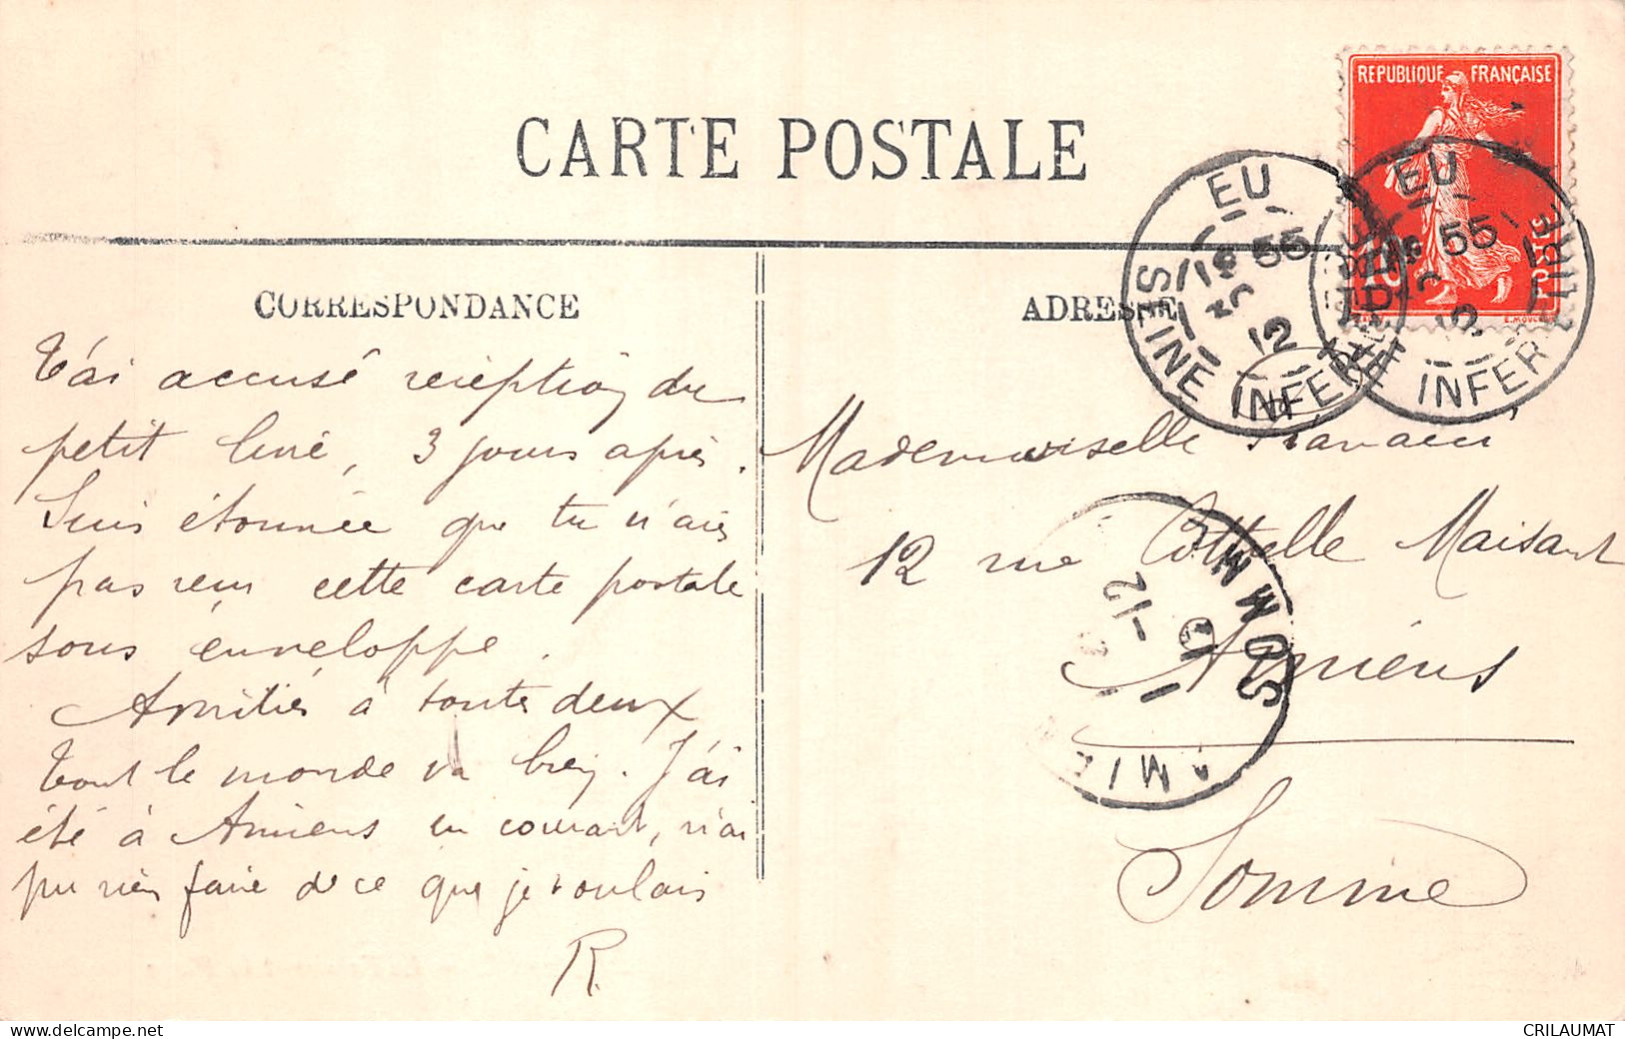 CARTE POSTALE
REPUBLIQUE FRANÇAISE
POSTES
10
EU
18 55
12
SEINE INFERRE
EU
55
12
INFERRE
CORRESPONDANCE
ADRESSE
T'ai accusé réception du
petit livre, 3 jours après.
Suis étonnée que tu n'aies
pas reçu cette carte postale
sous enveloppe.
Amitiés à toutes deux
Tout le monde va bien. J'ai
été à Amiens en courant, n'ai
pu rien faire de ce que je voulais
R
Mademoiselle
12 rue Cottrelle Maisant
Amiens
Somme
SOMME
1 -12
CRILAUMAT